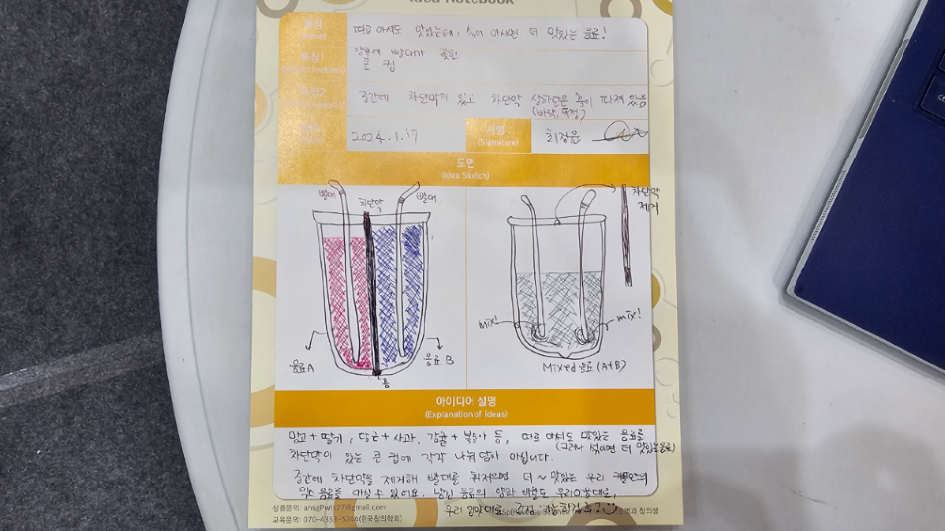 Idea Notebook
(Name)
따로 마셔도 맛있는데, 섞어 마시면 더 맛있는 음료!
특징1
양쪽에 빨대가 꽂힌
큰 컵
특징2
중간에 차단막이 있고 차단막 상하단은 홈이 파져 있음
2024.1.17
서명
(Signature)
최정윤
도면
(Idea Sketch)
빨대
차단막
빨대
차단막
제거
mix!
mix!
음료A
음료B
홈
Mixed 음료 (A+B)
아이디어 설명
(Explanation of Ideas)
망고+딸기, 당근+사과, 감귤+복숭아 등, 따로 마셔도 맛있는 음료를
(그러나 섞으면 더 맛있는 음료)
차단막이 있는 큰 컵에 각각 나눠 담아 마십니다.
중간에 차단막을 제거해 빨대를 휘저으면 더~ 맛있는 우리
믹스 음료를 마실 수 있어요. 남긴 음료의 양과 비율도 우리 마음대로,
우리 입맛대로
상품문의:
교육문의: 070-4353-5244(한국창의학회)